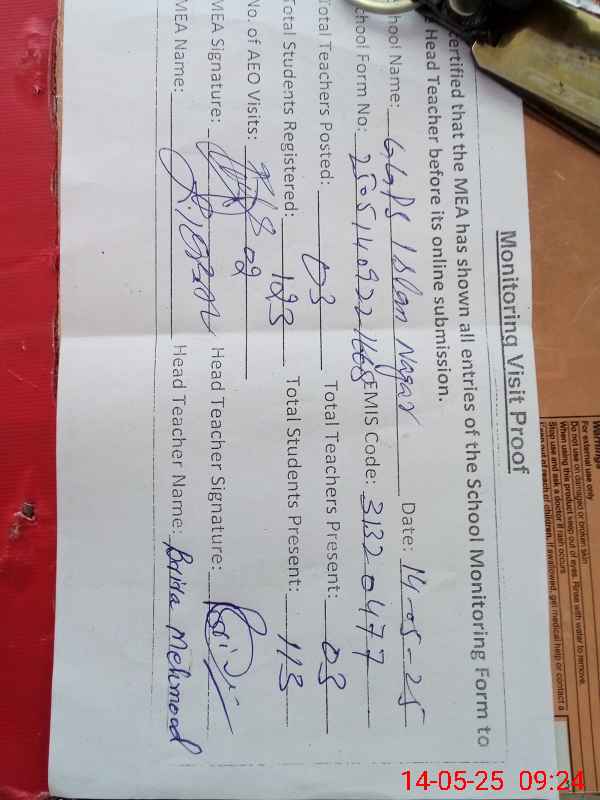 Monitoring Visit Proof
ertified that the MEA has shown all entries of the School Monitoring Form to
Head Teacher before its online submission.
hool Name: GGPS Islam Nagar Date: 14-05-25
chool Form No: EMIS Code: 31320477
Total Teachers Posted: 03 Total Teachers Present: 03
Total Students Registered: 123 Total Students Present: 113
No. of AEO Visits: 02
MEA Signature: Head Teacher Signature:
MEA Name: Head Teacher Name: Mehmood
Warnings
For external use only
Do not use on damaged or broken skin
When using this product keep out of eyes. Rinse with water to remove.
Stop use and ask a doctor if rash occurs
Keep out of reach of children. If swallowed, get medical help or contact a
14-05-25 09:24